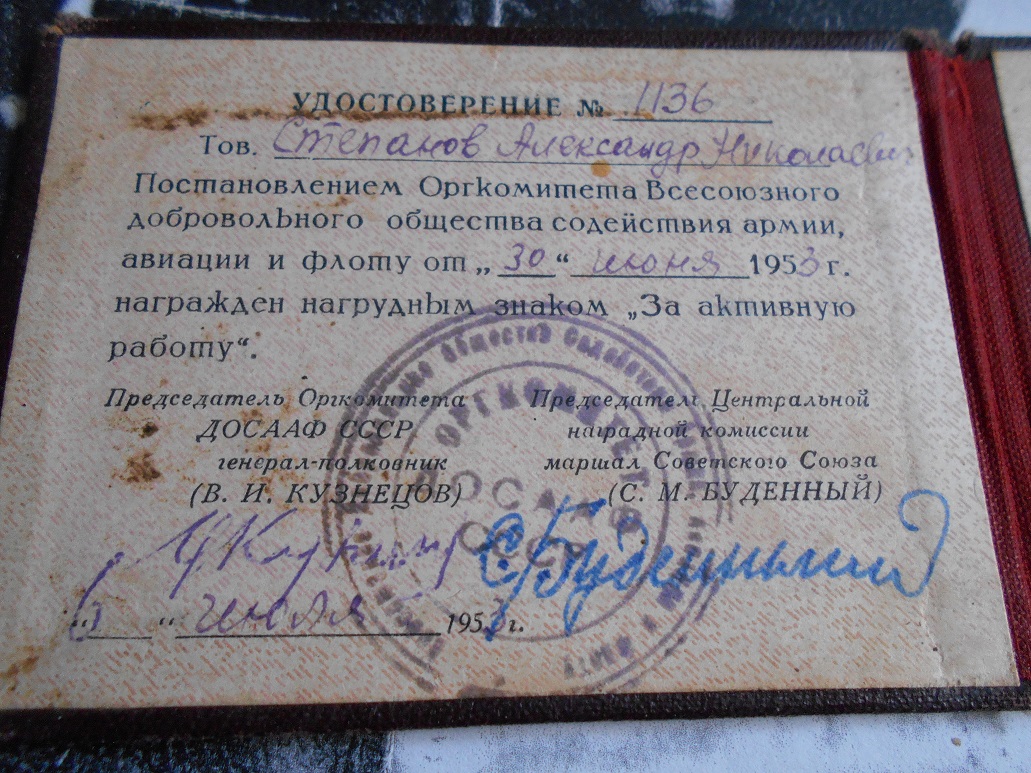 УДОСТОВЕРЕНИЕ № 1136
Тов. Степанов Александр Николаевич
Постановлением Оргкомитета Всесоюзного
добровольного общества содействия армии,
авиации и флоту от „30“ июня 1953 г.
награжден нагрудным знаком „За активную
работу“.
Председатель Оргкомитета
ДОСААФ СССР
генерал-полковник
(В. И. КУЗНЕЦОВ)
Председатель Центральной
наградной комиссии
маршал Советского Союза
(С. М. БУДЕННЫЙ)
С. Буденный
июля 1953 г.
ОРГКОМИТЕТ
ДОСААФ
СССР